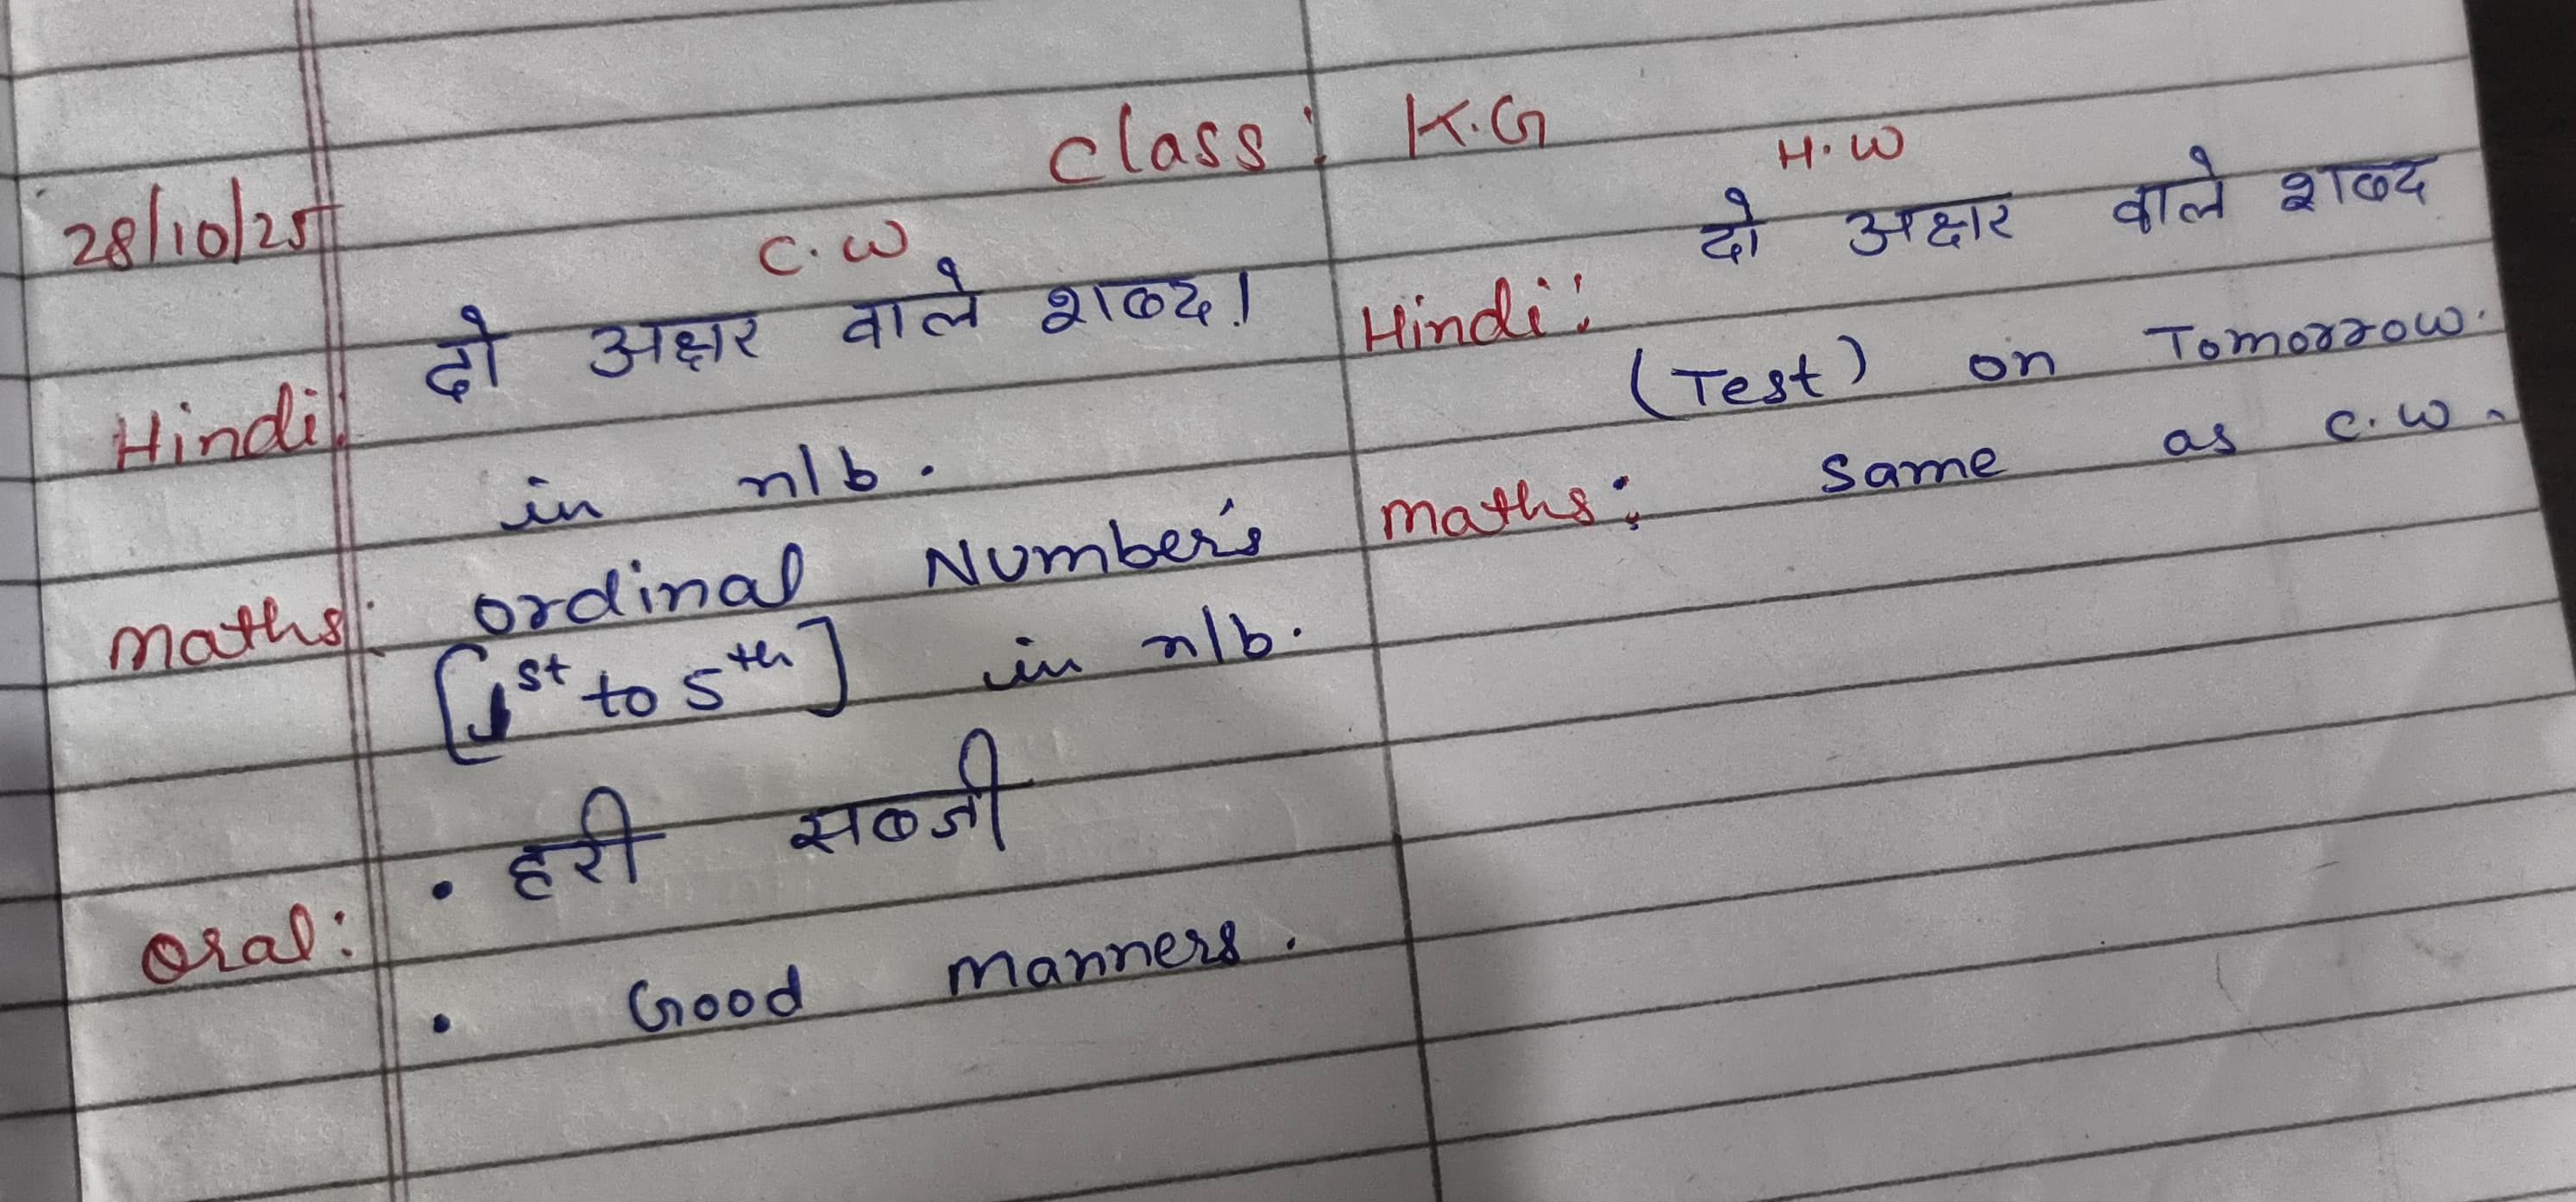 Class: K.G
28/10/25
C.W
Hindi: दो अक्षर वाले शब्द।
in n/b.
Maths: Ordinal Number's
[1st to 5th] in n/b.
Oral: • हरी सब्जी
• Good Manners.
H.W
Hindi: दो अक्षर वाले शब्द
(Test) on Tomorrow.
Maths: Same as C.W.